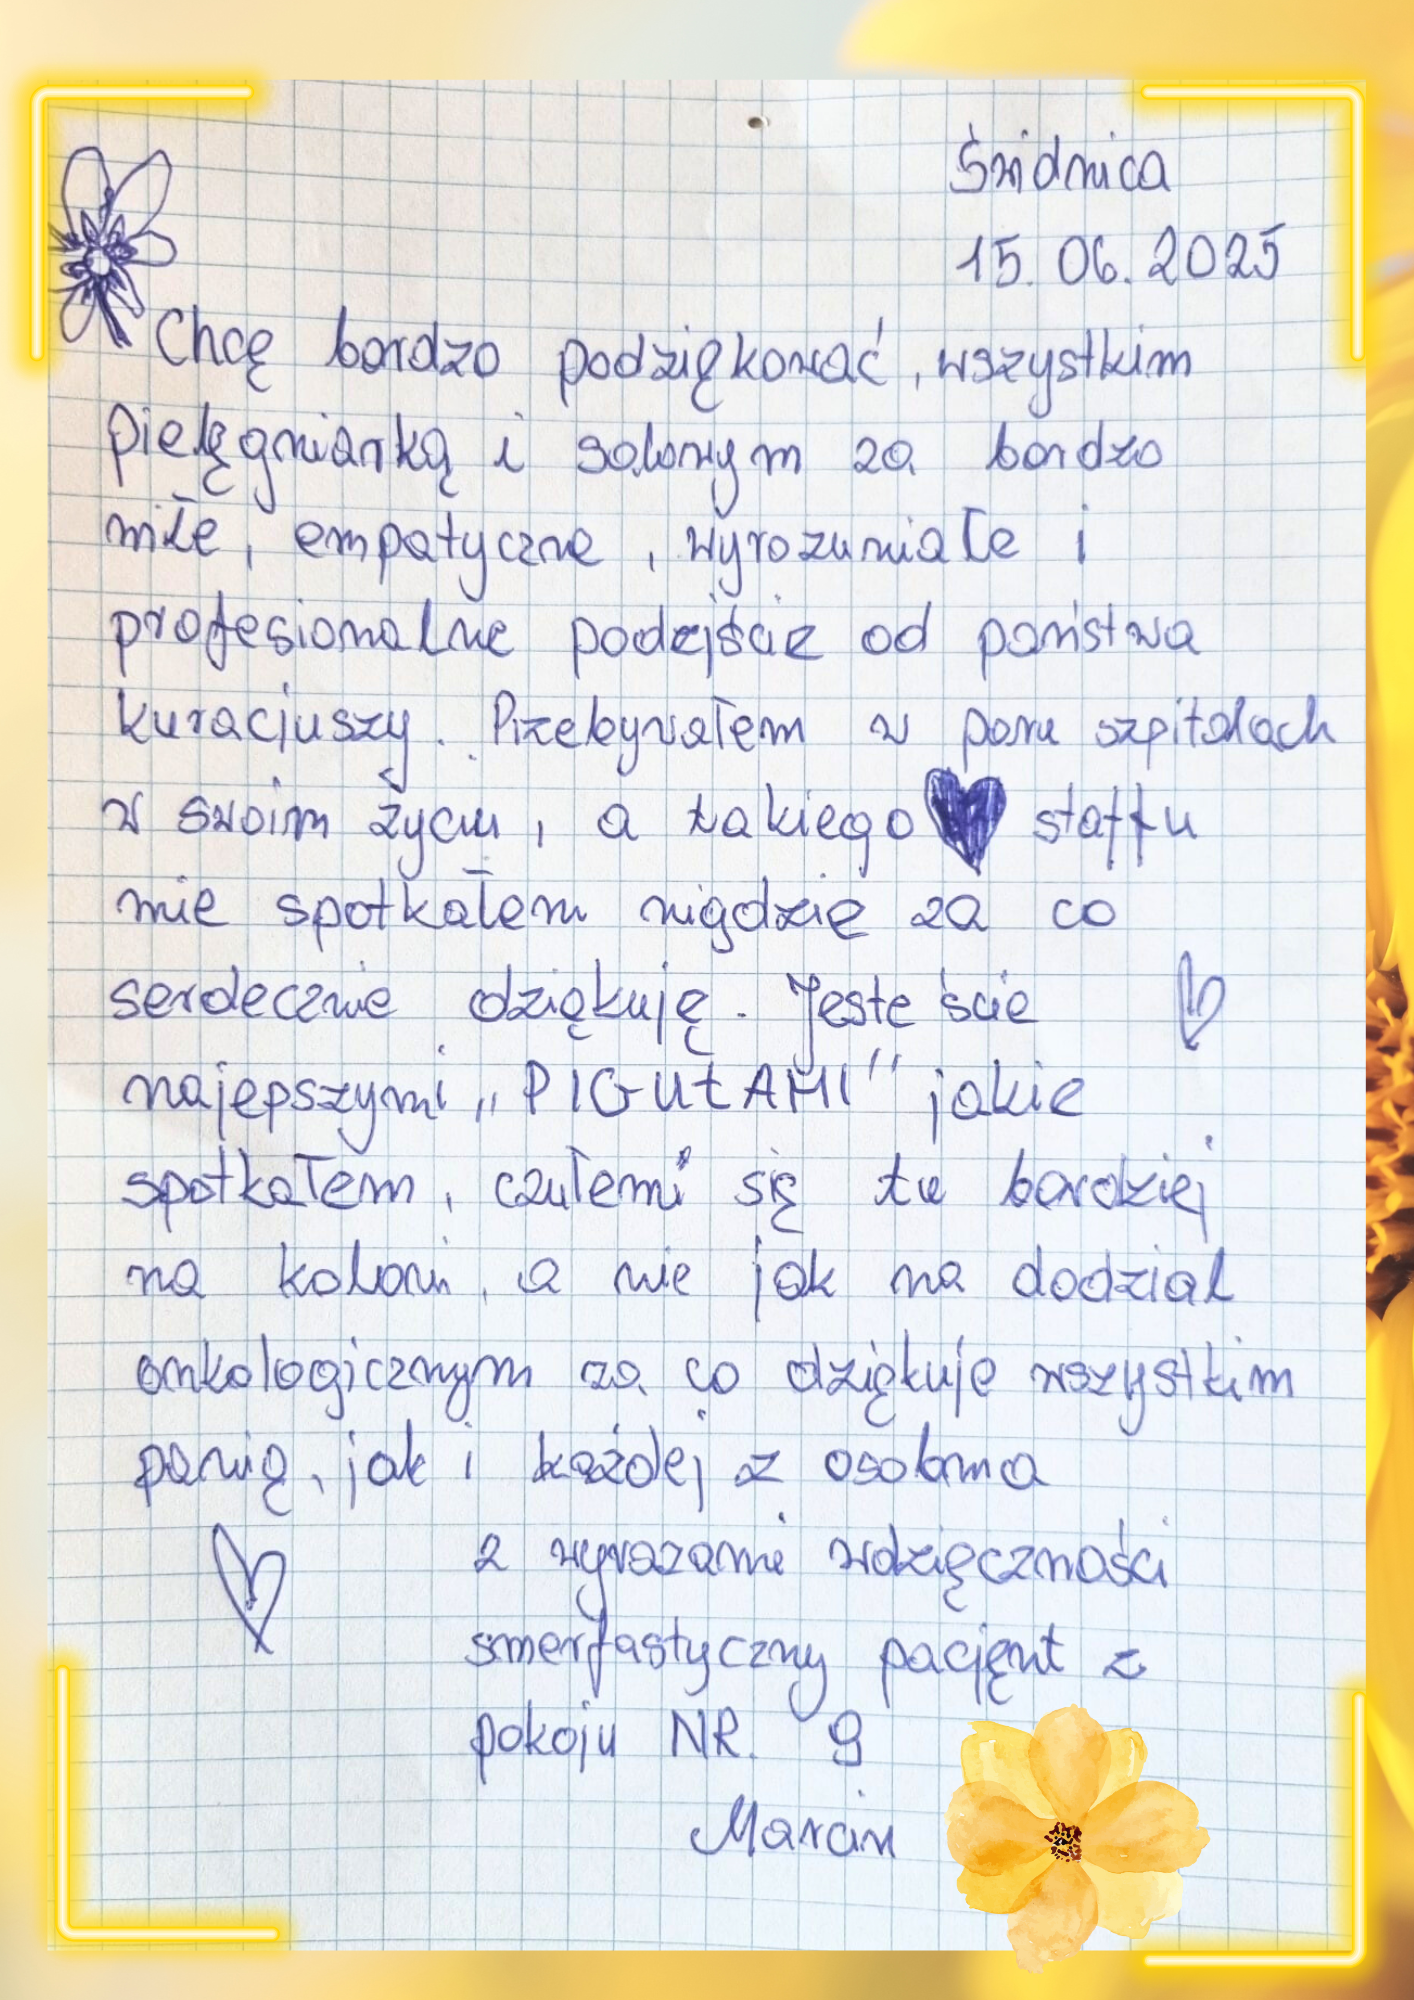 Świdnica
15.06.2025
Chcę bardzo podziękować, wszystkim
pielęgniarką i salowym za bardzo
miłe, empatyczne, wyrozumiałe i
profesionalne podejście od państwa
kuracjuszy. Przebywałem w paru szpitalach
w swoim życiu, a takiego staffu
nie spotkałem nigdzie za co
serdecznie dziękuję. Jesteście
najepszymi „PIGUŁAMI" jakie
spotkałem, czułem się tu bardziej
na koloni, a nie jak na dodzial
onkologicznym za co dziękuje wszystkim
panią, jak i każdej z osobna
z wyrazami wdzięczności
smerfastyczny pacjęnt z
pokoju NR. 9
Marcin